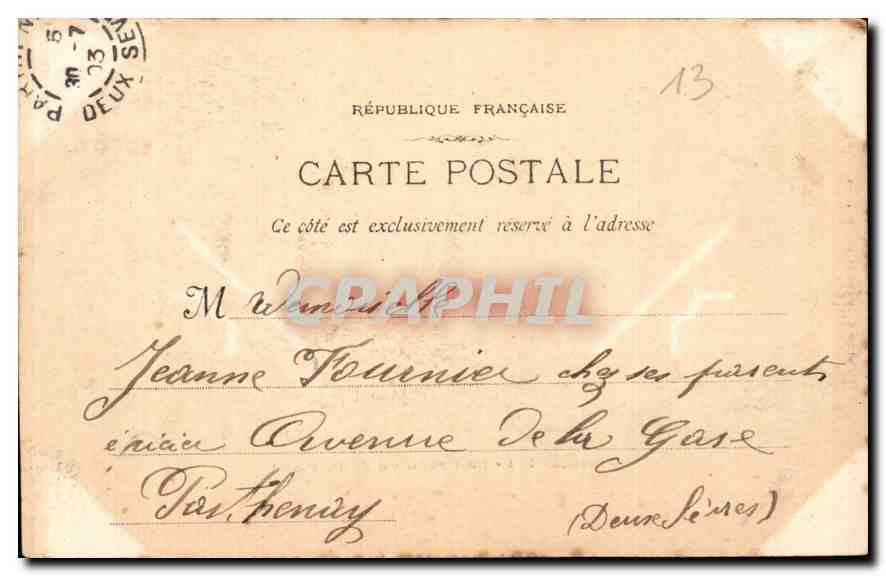 PARTHEN
5
30 -7
03
DEUX SEV
13
RÉPUBLIQUE FRANÇAISE
CARTE POSTALE
Ce côté est exclusivement réservé à l'adresse
CARTAPHIL
M
Jeanne Fournier chez ses parents
épicier Avenue de la Gare
Parthenay
(Deux Sèvres)